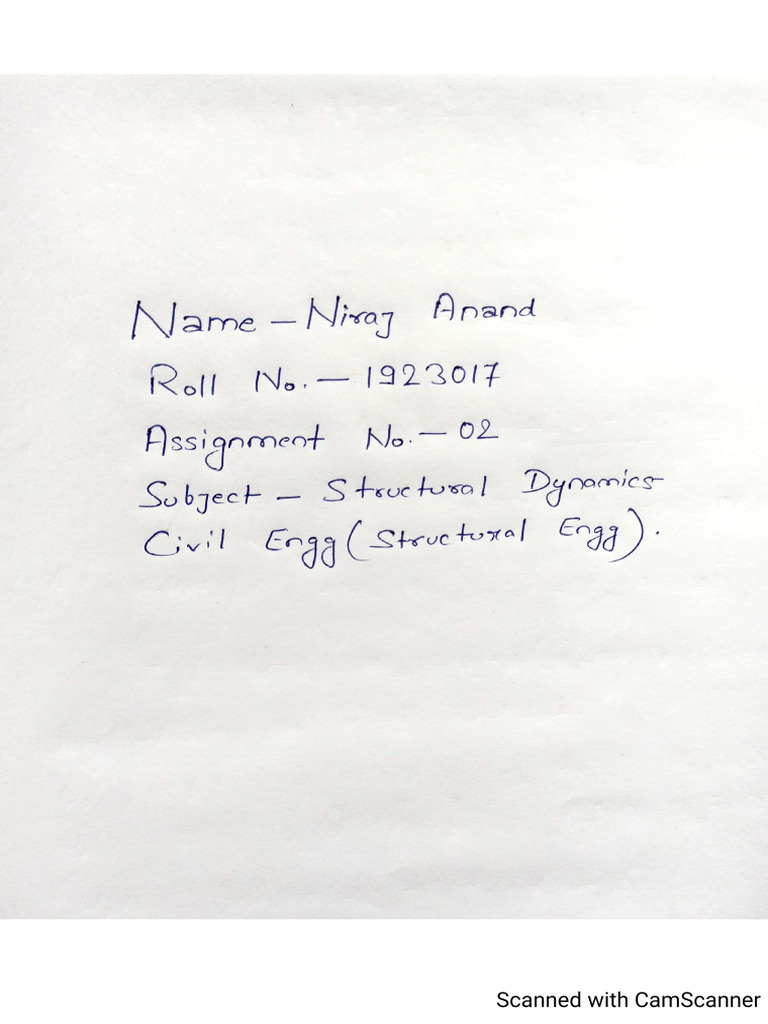 Name - Niraj Anand
Roll No. - 1923017
Assignment No. - 02
Subject - Structural Dynamics
Civil Engg (Structural Engg).
Scanned with CamScanner